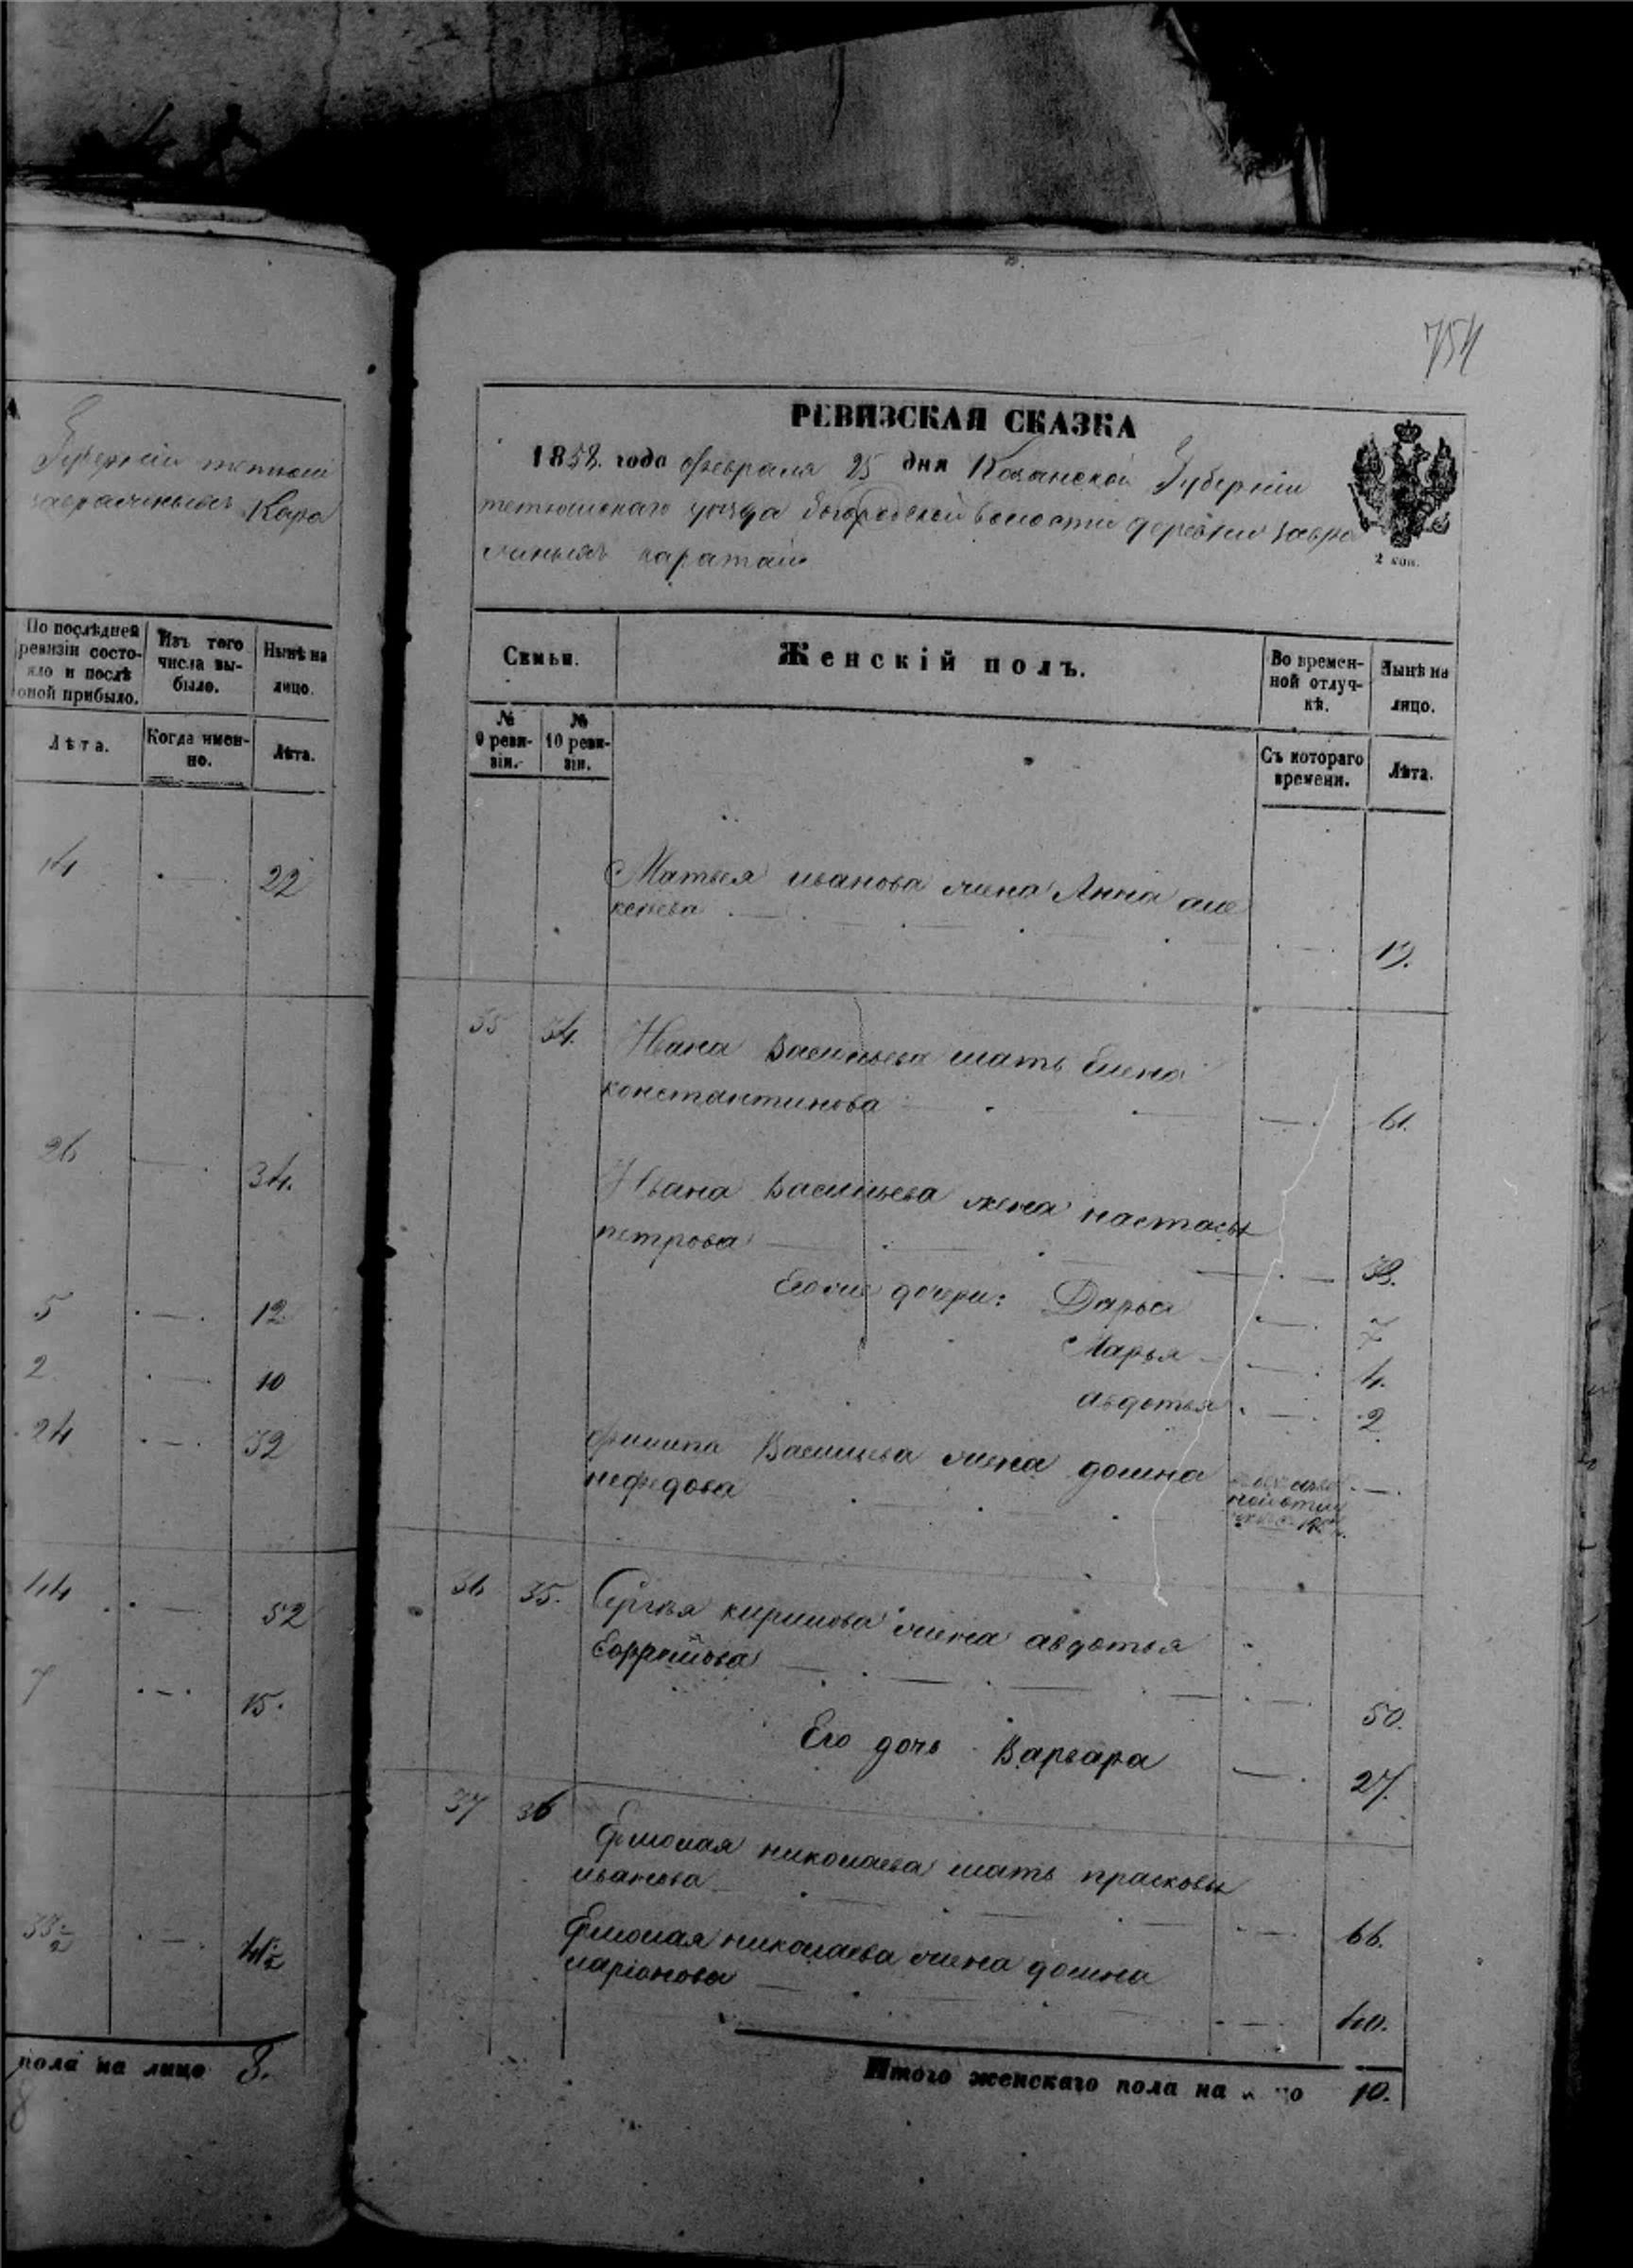 А
Губерніи тетюш
завражныхъ Кара
По послѣдней ревизіи состояло и послѣ оной прибыло.
Изъ того числа выбыло.
Нынѣ на лицо.
Лѣта.
Когда именно.
Лѣта.
14 22
26 34.
5 12
2 10
24 32
44 52
7 15.
33½ 41½
пола на лицо 8.
754
РЕВИЗСКАЯ СКАЗКА
1858. года февраля 25 дня Казанской Губерніи
тетюшскаго уезда Богородской волости деревни завра
жныхъ каратай
2 коп.
Семьи.
Женскій полъ.
Во временной отлучкѣ.
Нынѣ на лицо.
№ 9 ревизіи.
№ 10 ревизіи.
Съ котораго времени.
Лѣта.
Матвея иванова жена Анна але
ксеева 19.
35 34. Ивана Васильева мать Елена
константинова 61.
Ивана Васильева жена настасья
петрова 33.
Его же дочери: Дарья 7
Марья 4.
авдотья 2
филипа Васильева жена домна
нефедова
36 35. Сергѣя кирилова жена авдотья
Ефремова 50.
Его дочь Варвара 27.
37 36 Ермолая николаева мать прасковья
иванова 66.
Ермолая николаева жена домна
ларіонова 40.
Итого женскаго пола на лицо 10.